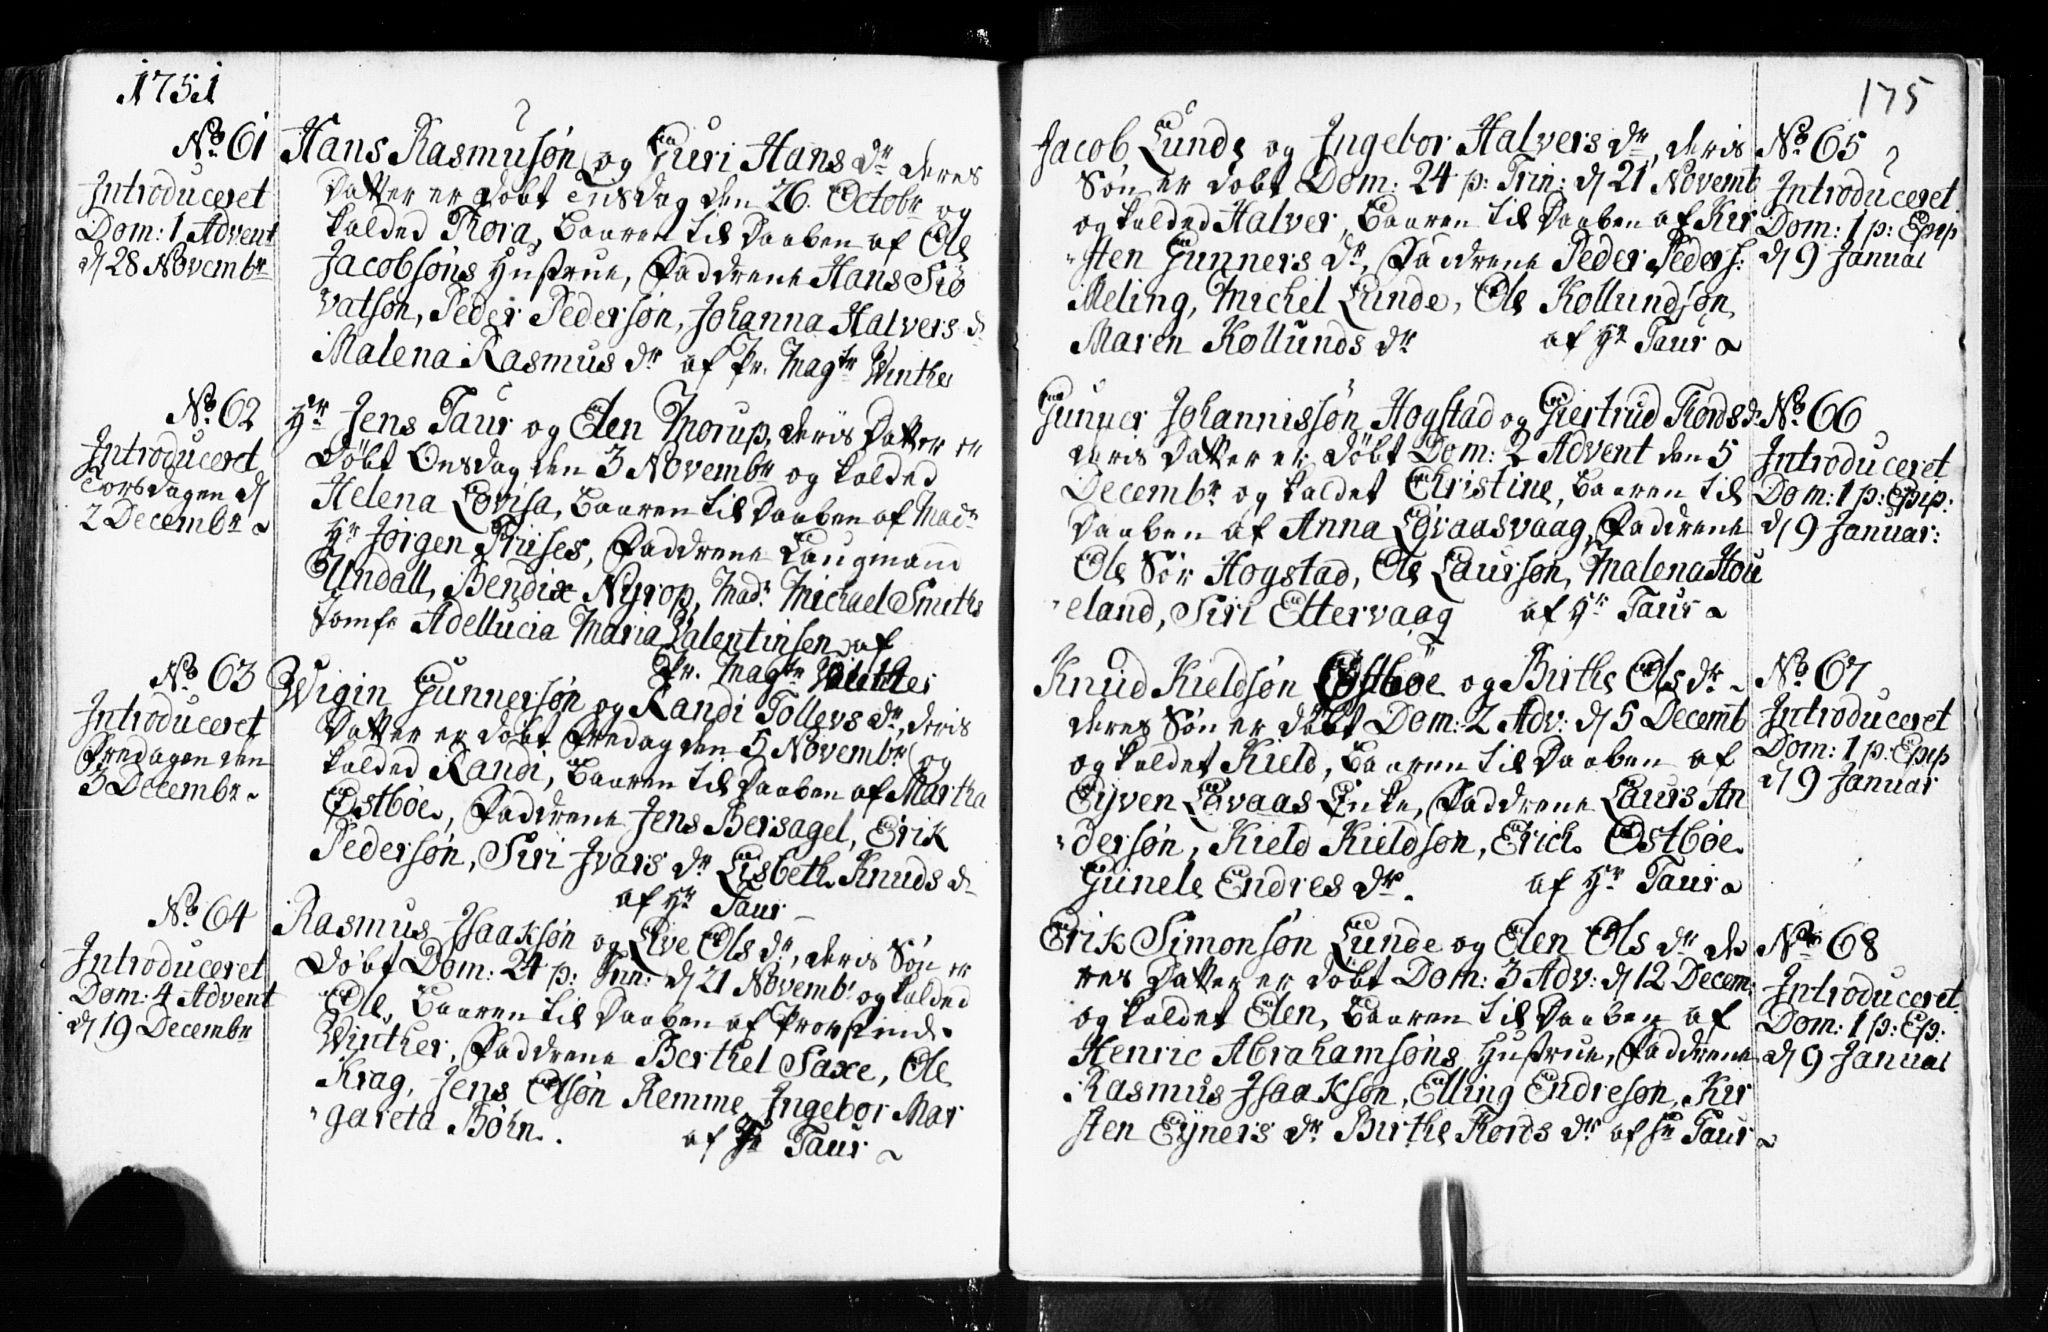 1751
No 61
Introduceret
Dom: 1 Advent
d 28 Novembr
Hans Rasmusøn og Guri Hans dr deres
Datter er døbt Tisdag den 26. Octobr og
kalded Thora, Baaren til Daaben af Ole
Jacobsøns Hustrue, Faddrene Hans Siø
vatsøn, Peder Pedersøn, Johanna Halvers d
Malena Rasmus dr af Pr. Magtr Winther
No 62
Introduceret
Torsdagen d
2 Decembr
Hr Jens Taur og Elen Thorup, deris Datter er
Døbt Onsdag den 3 Novembr og kalded
Helena Lovisa, Baaren til Daaben af Madr
Hr Jørgen Friises, Faddrene Laugmand
Undall, Bendix Nyrop, Madr Michael Smiths
Jomfr Adellucia Maria Valentinsen af
Pr. Magtr Winther
No 63
Introduceret
Fredagen den
3 Decembr
Wigin Gunnersøn og Randi Tollevs dr, deris
Datter er døbt Fredag den 5 Novembr og
kalded Randi, Baaren til Daaben af Martha
Østbøe, Faddrene Jens Bersagel, Erik
Pedersøn, Siri Ivars dr Lisbeth Knuds d
af Hr Taur
No 64
Introduceret
Dom: 4 Advent
d 19 Decembr
Rasmus Isaaksøn og Elve Ols dr, deris Søn er
Døbt Dom: 24 p: Trin: d 21 Novembr og kalded
Ole, Baaren til Daaben af Provstind
Winther, Faddrene Berthel Saxe, Ole
Krag, Jens Olsøn Remme, Ingebor Mar
gareta Bøhn. af Hr Taur
175
Jacob Lunde og Ingebor Halvers dr, deris
Søn er døbt Dom: 24 p: Trin: d 21 Novemb
og kalded Halver, Baaren til Daaben af Kir
sten Gunners dr, Faddrene Peder Peders:
Meling, Michel Lunde, Ole Kollundsøn,
Maren Kollunds dr af Hr Taur
No 65
Introduceret
Dom: 1 p: Epip
d 9 Januar
Gunner Johannissøn Hogstad og Giertrud Thords d
deris Datter er Døbt Dom: 2 Advent den 5
Decembr og kaldet Christine, Baaren til
Daaben af Anna Løvaasvaag, Faddrene
Ole Sør Hogstad, Ole Laursøn, Malena Hou
eland, Siri Ettervaag af Hr Taur
No 66
Introduceret
Dom: 1 p: Epip:
d 9 Januar:
Knud Kieldsøn Østbøe og Birthe Ols dr
deres Søn er døbt Dom: 2 Adv: d 5 Decemb
og kaldet Kield, Baaren til Daaben af
Eyven Lavaas Enke, Faddrene Laurs An
dersøn, Kield Kieldsøn, Erich Østbøe
Gunele Endres dr. af Hr Taur
No 67
Introduceret
Dom: 1 p: Epip
d 9 Januar
Erik Simonsøn Lunde og Elen Ols dr de
res Datter er døbt Dom: 3 Adv: d 12 Decem:
og kaldet Elen, Baaren til Daaben af
Henric Abrahamsøns Hustrue, Faddrene
Rasmus Isaaksøn, Elling Endresøn, Kir
sten Eyners dr Birthe Thords dr af Hr Taur
No 68
Introduceret
Dom: 1 p: Ep:
d 9 Januar